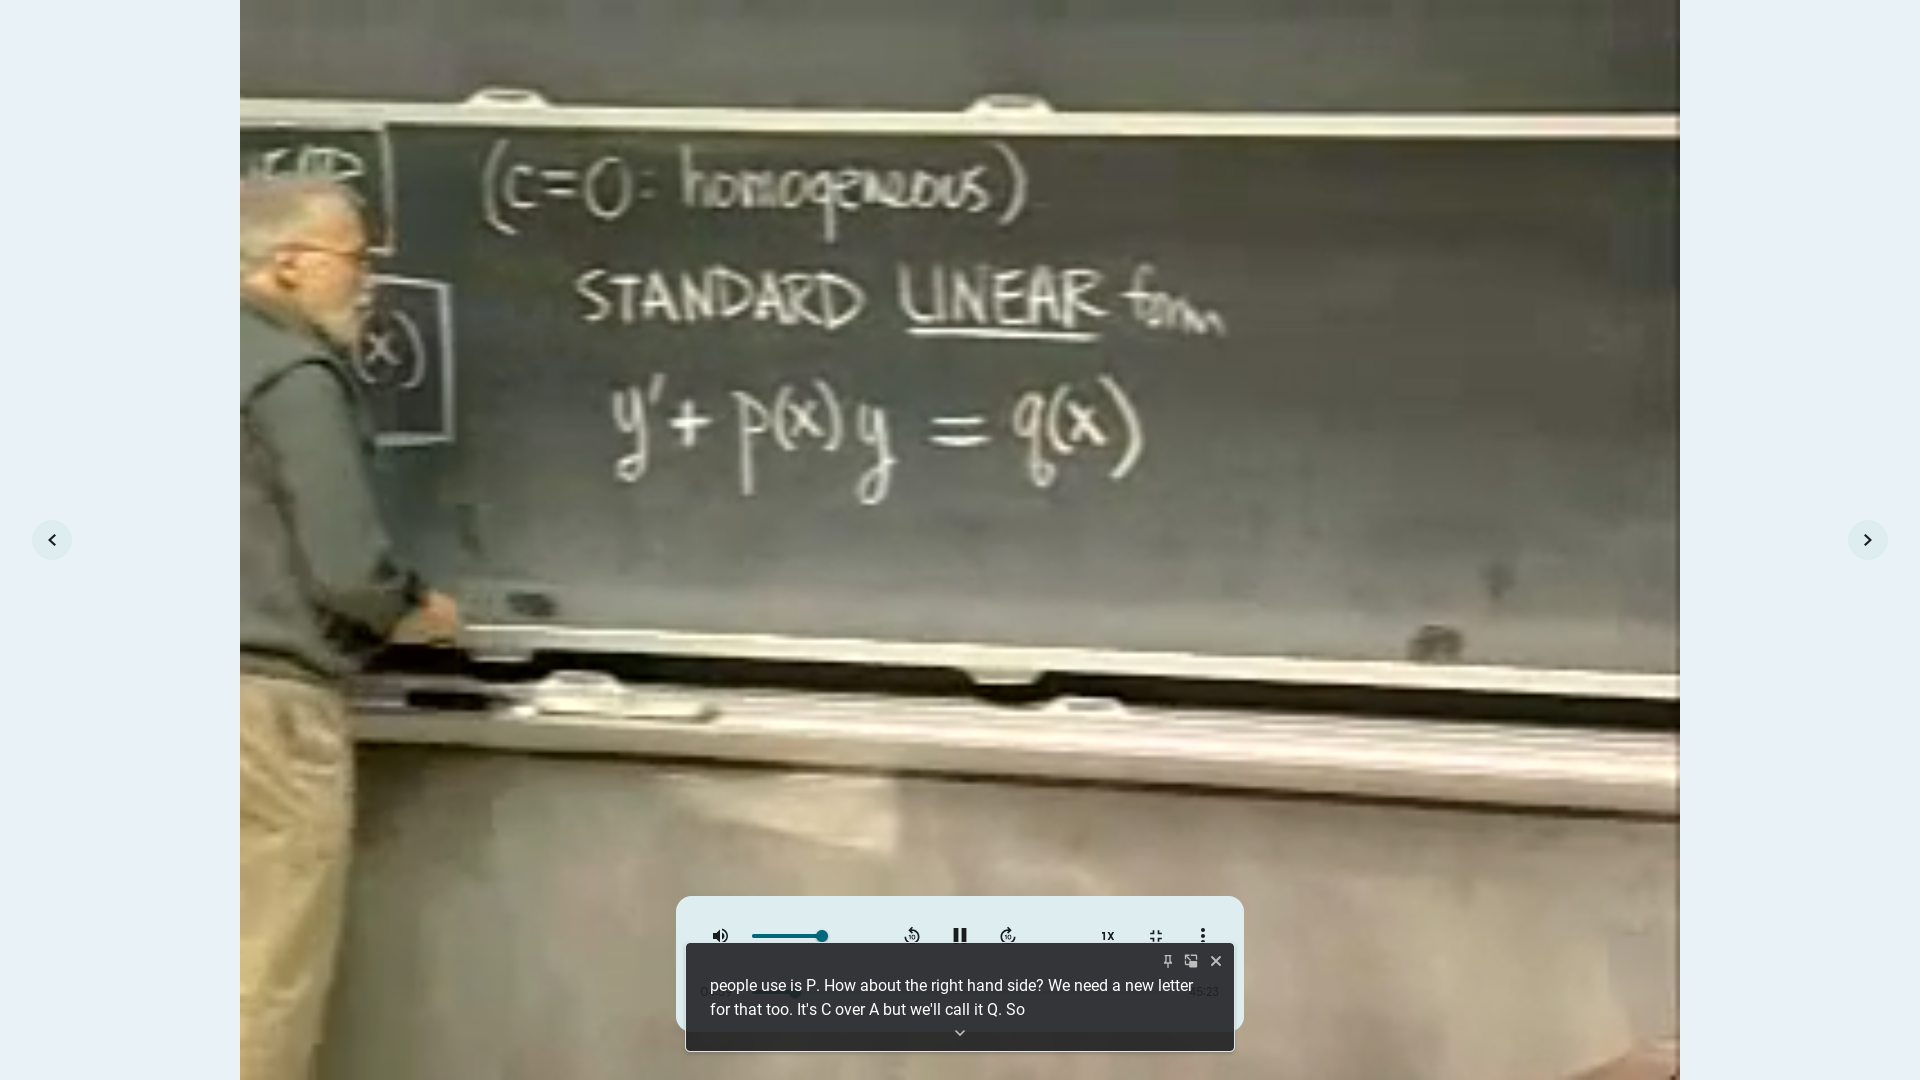 (c=0: homogeneous)
STANDARD LINEAR form
(x)
y' + p(x) y = q(x)
1X
people use is P. How about the right hand side? We need a new letter
for that too. It's C over A but we'll call it Q. So